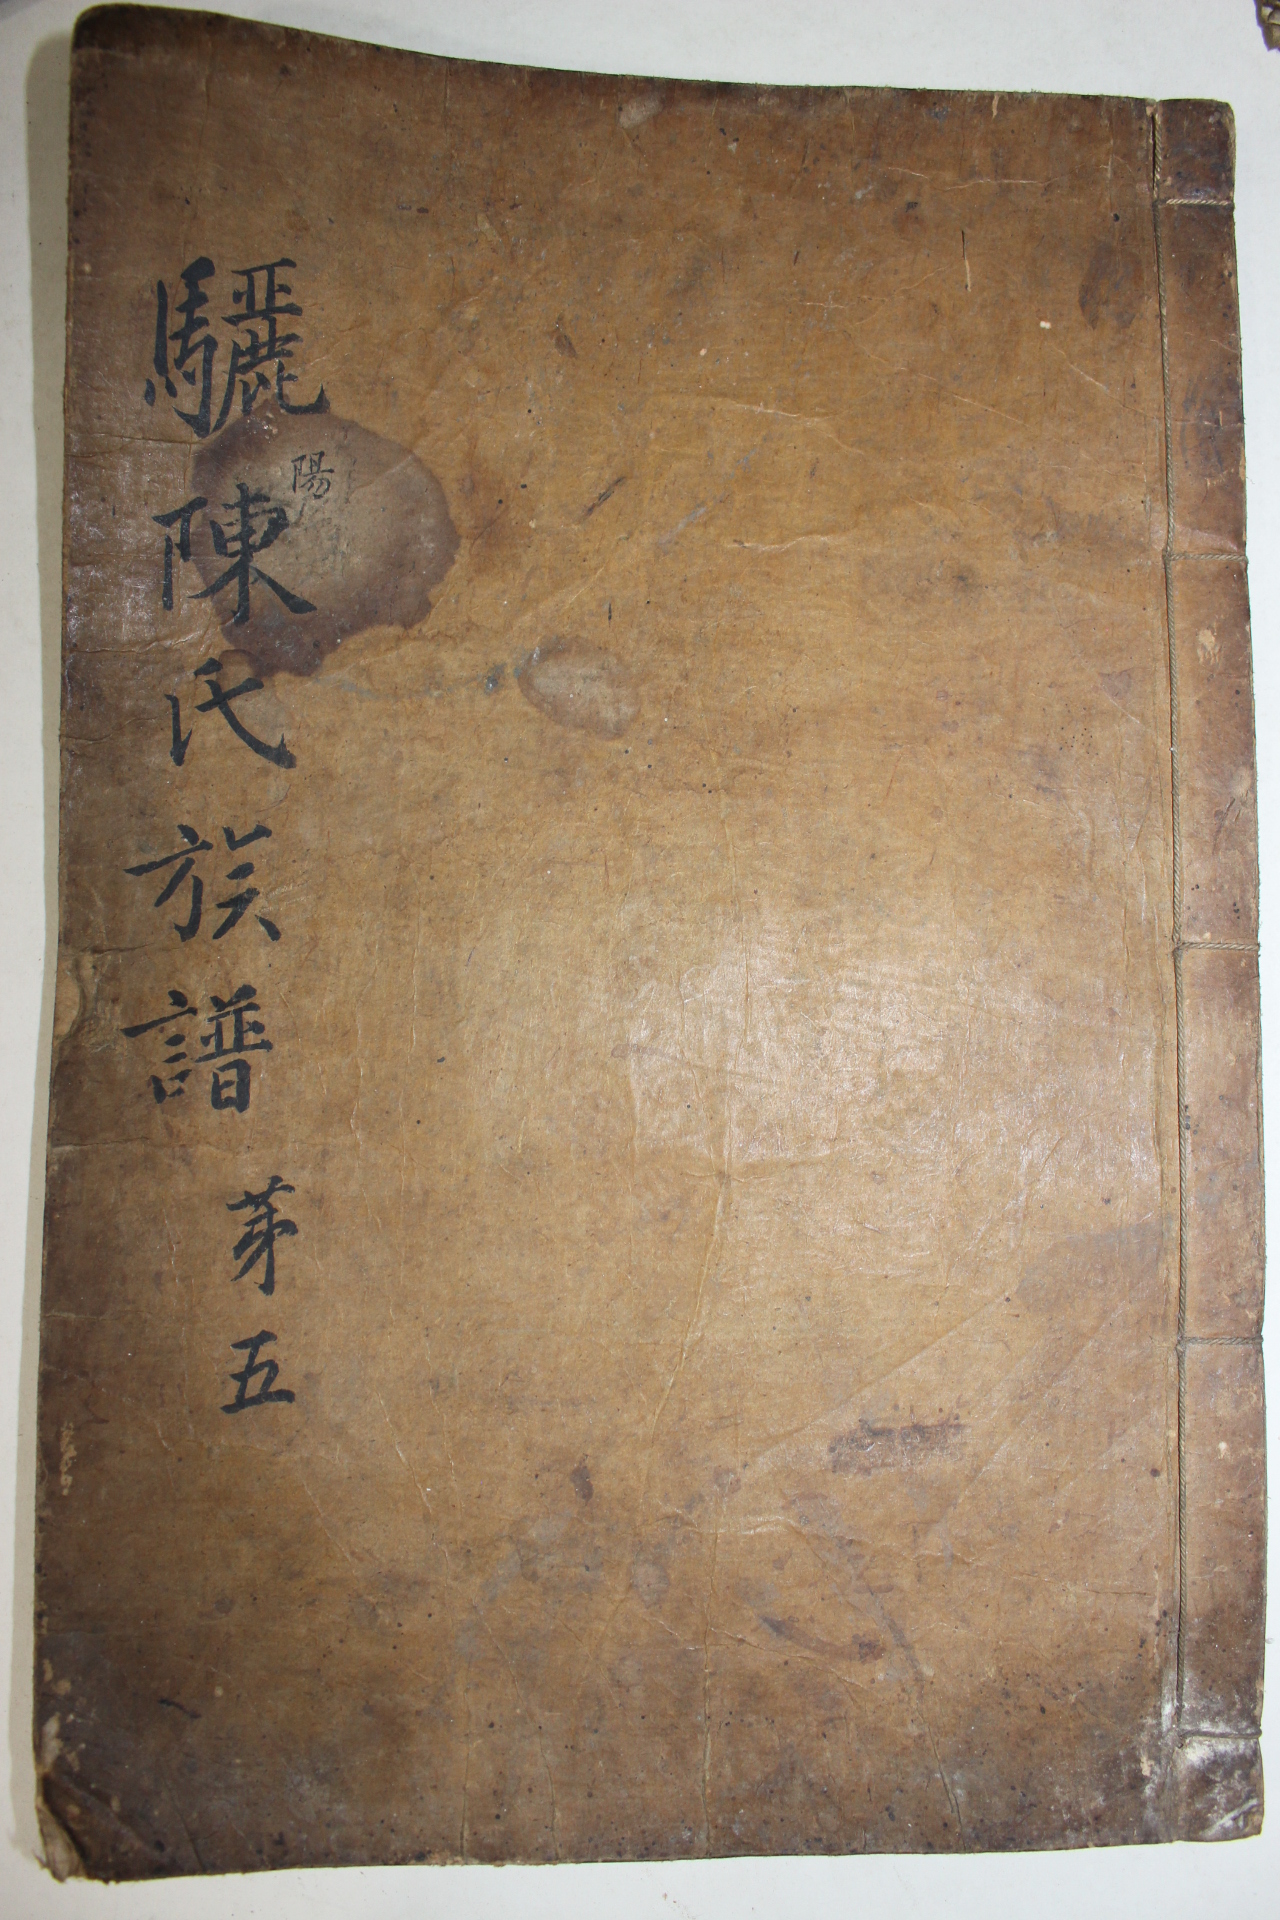 驪陳氏族譜 苐五
陽